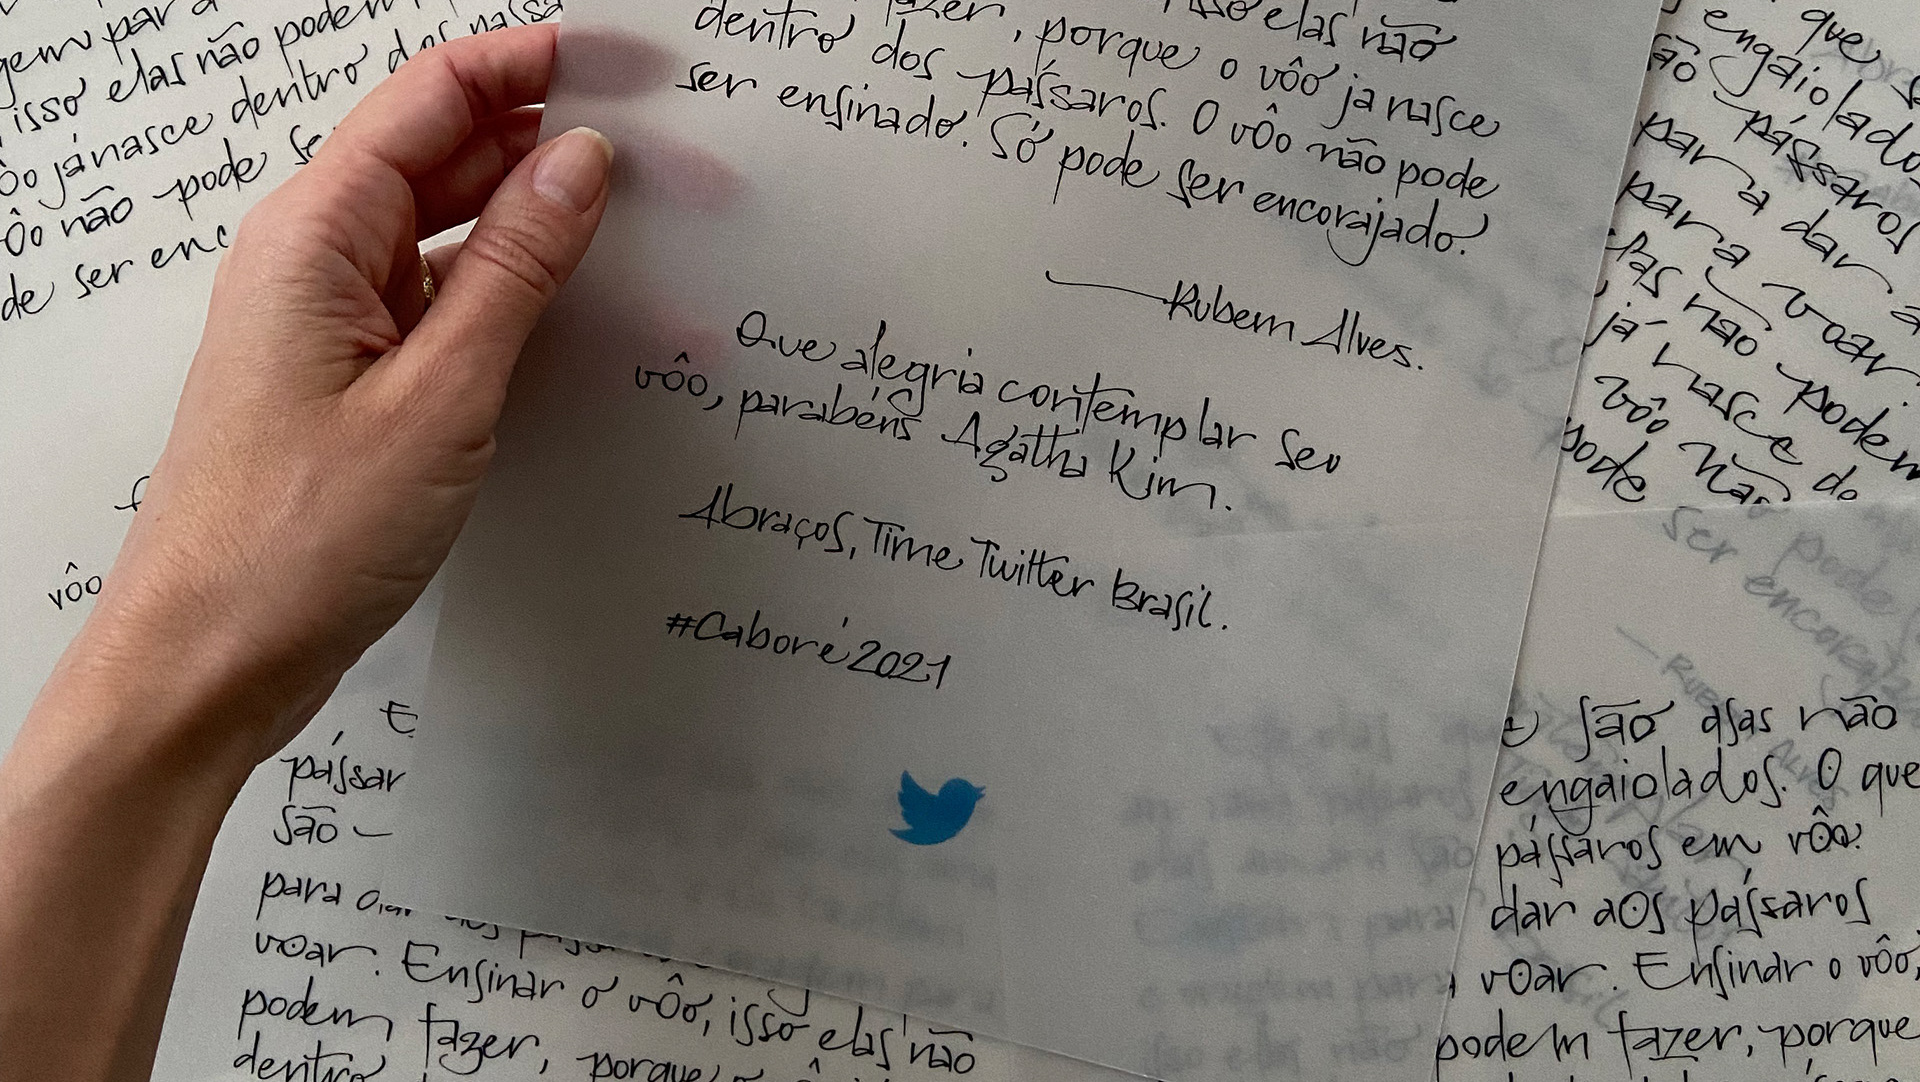 gem para
isso elas não podem
vôo já nasce dentro dos pássa
vôo não pode se
de ser enc
vôo
fazer, isso elas não
dentro dos pássaros. O vôo não pode
, porque o vôo já nasce
ser ensinado. Só pode ser encorajado.
— Rubem Alves.
Que alegria contemplar seu
vôo, parabéns Agatha Kim.
Abraços, Time Twitter Brasil.
#Caboré2021
E
pássar
são
para
voar. Ensinar o vôo, isso elas não
podem fazer, porque o
dentro
que s
engaiolados
são pássaros
para dar a
para voar.
elas não podem
já nasce de
vôo não
pode
ser encora
são asas não
engaiolados. O que
pássaros em vôo.
dar aos pássaros
voar. Ensinar o vôo,
podem fazer, porque